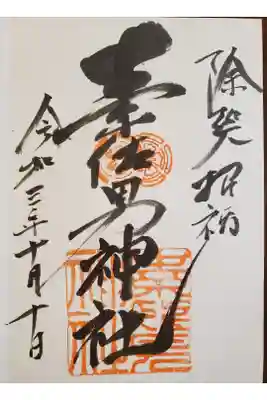 除災招福
素佐男神社
令和三年十月十日